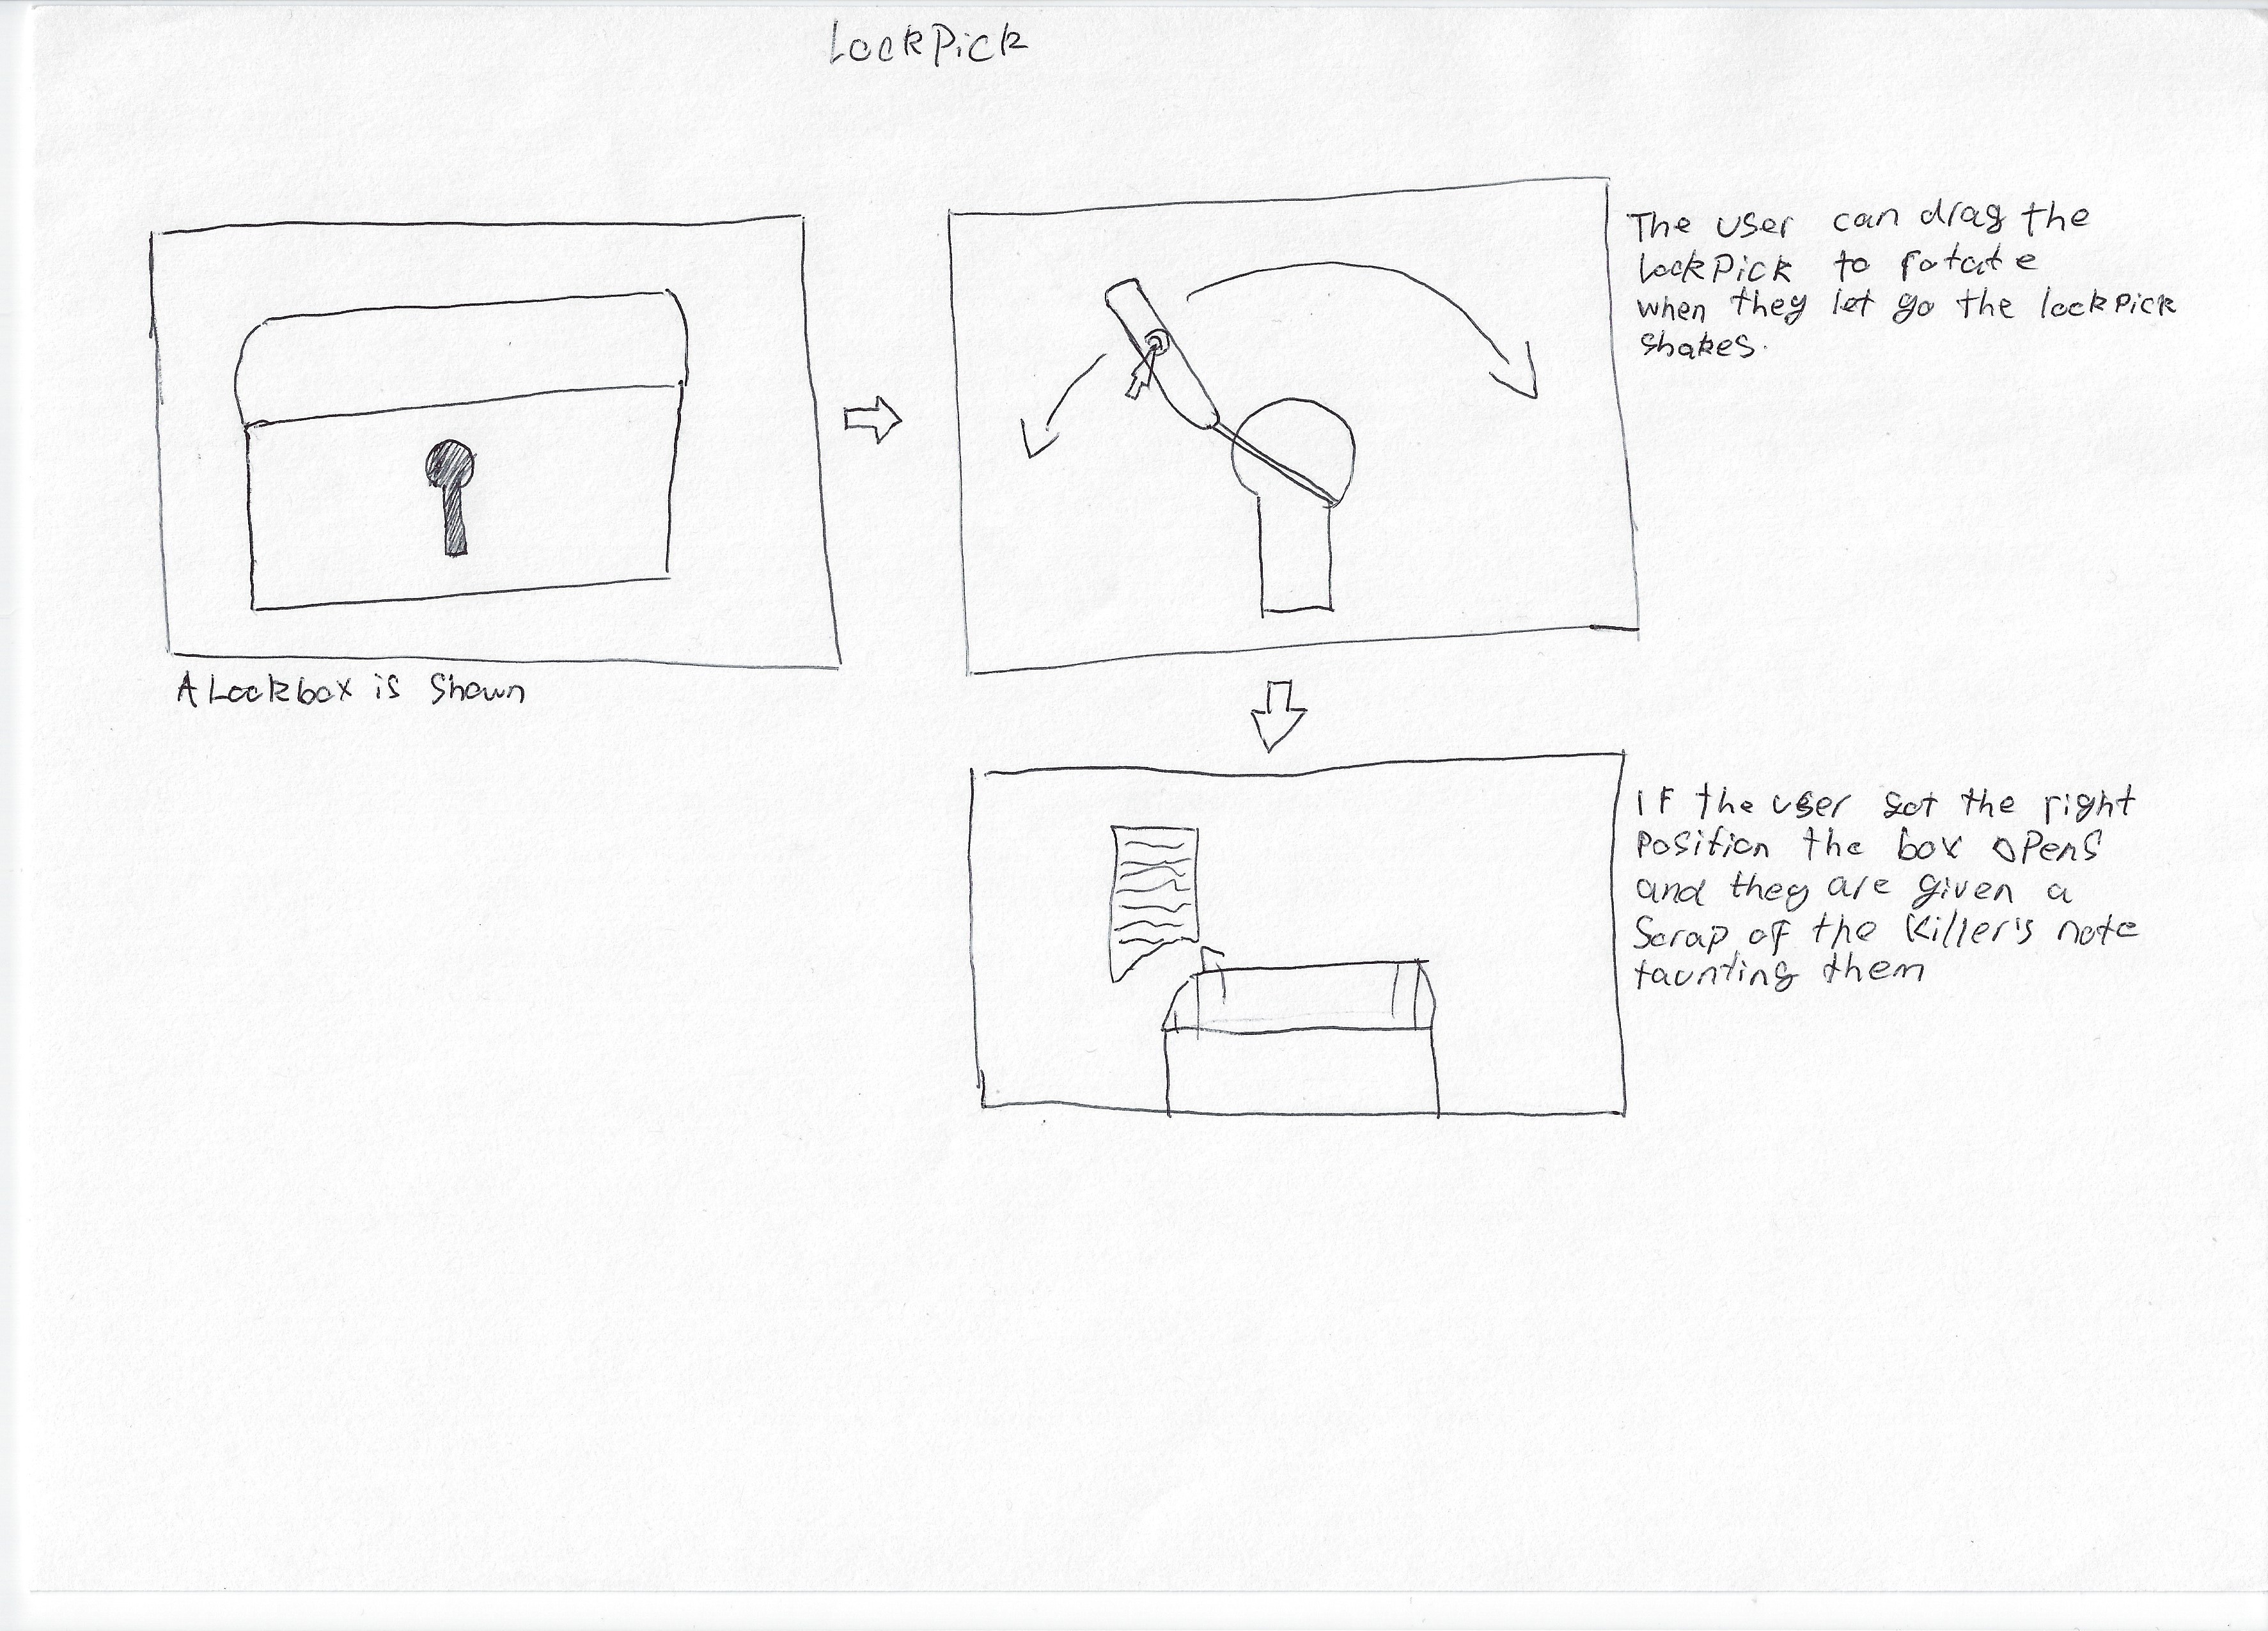 LockPick
The user can drag the
lockpick to rotate
when they let go the lockpick
shakes.
A Lockbox is shown
If the user got the right
position the box opens
and they are given a
Scrap of the Killer's note
taunting them